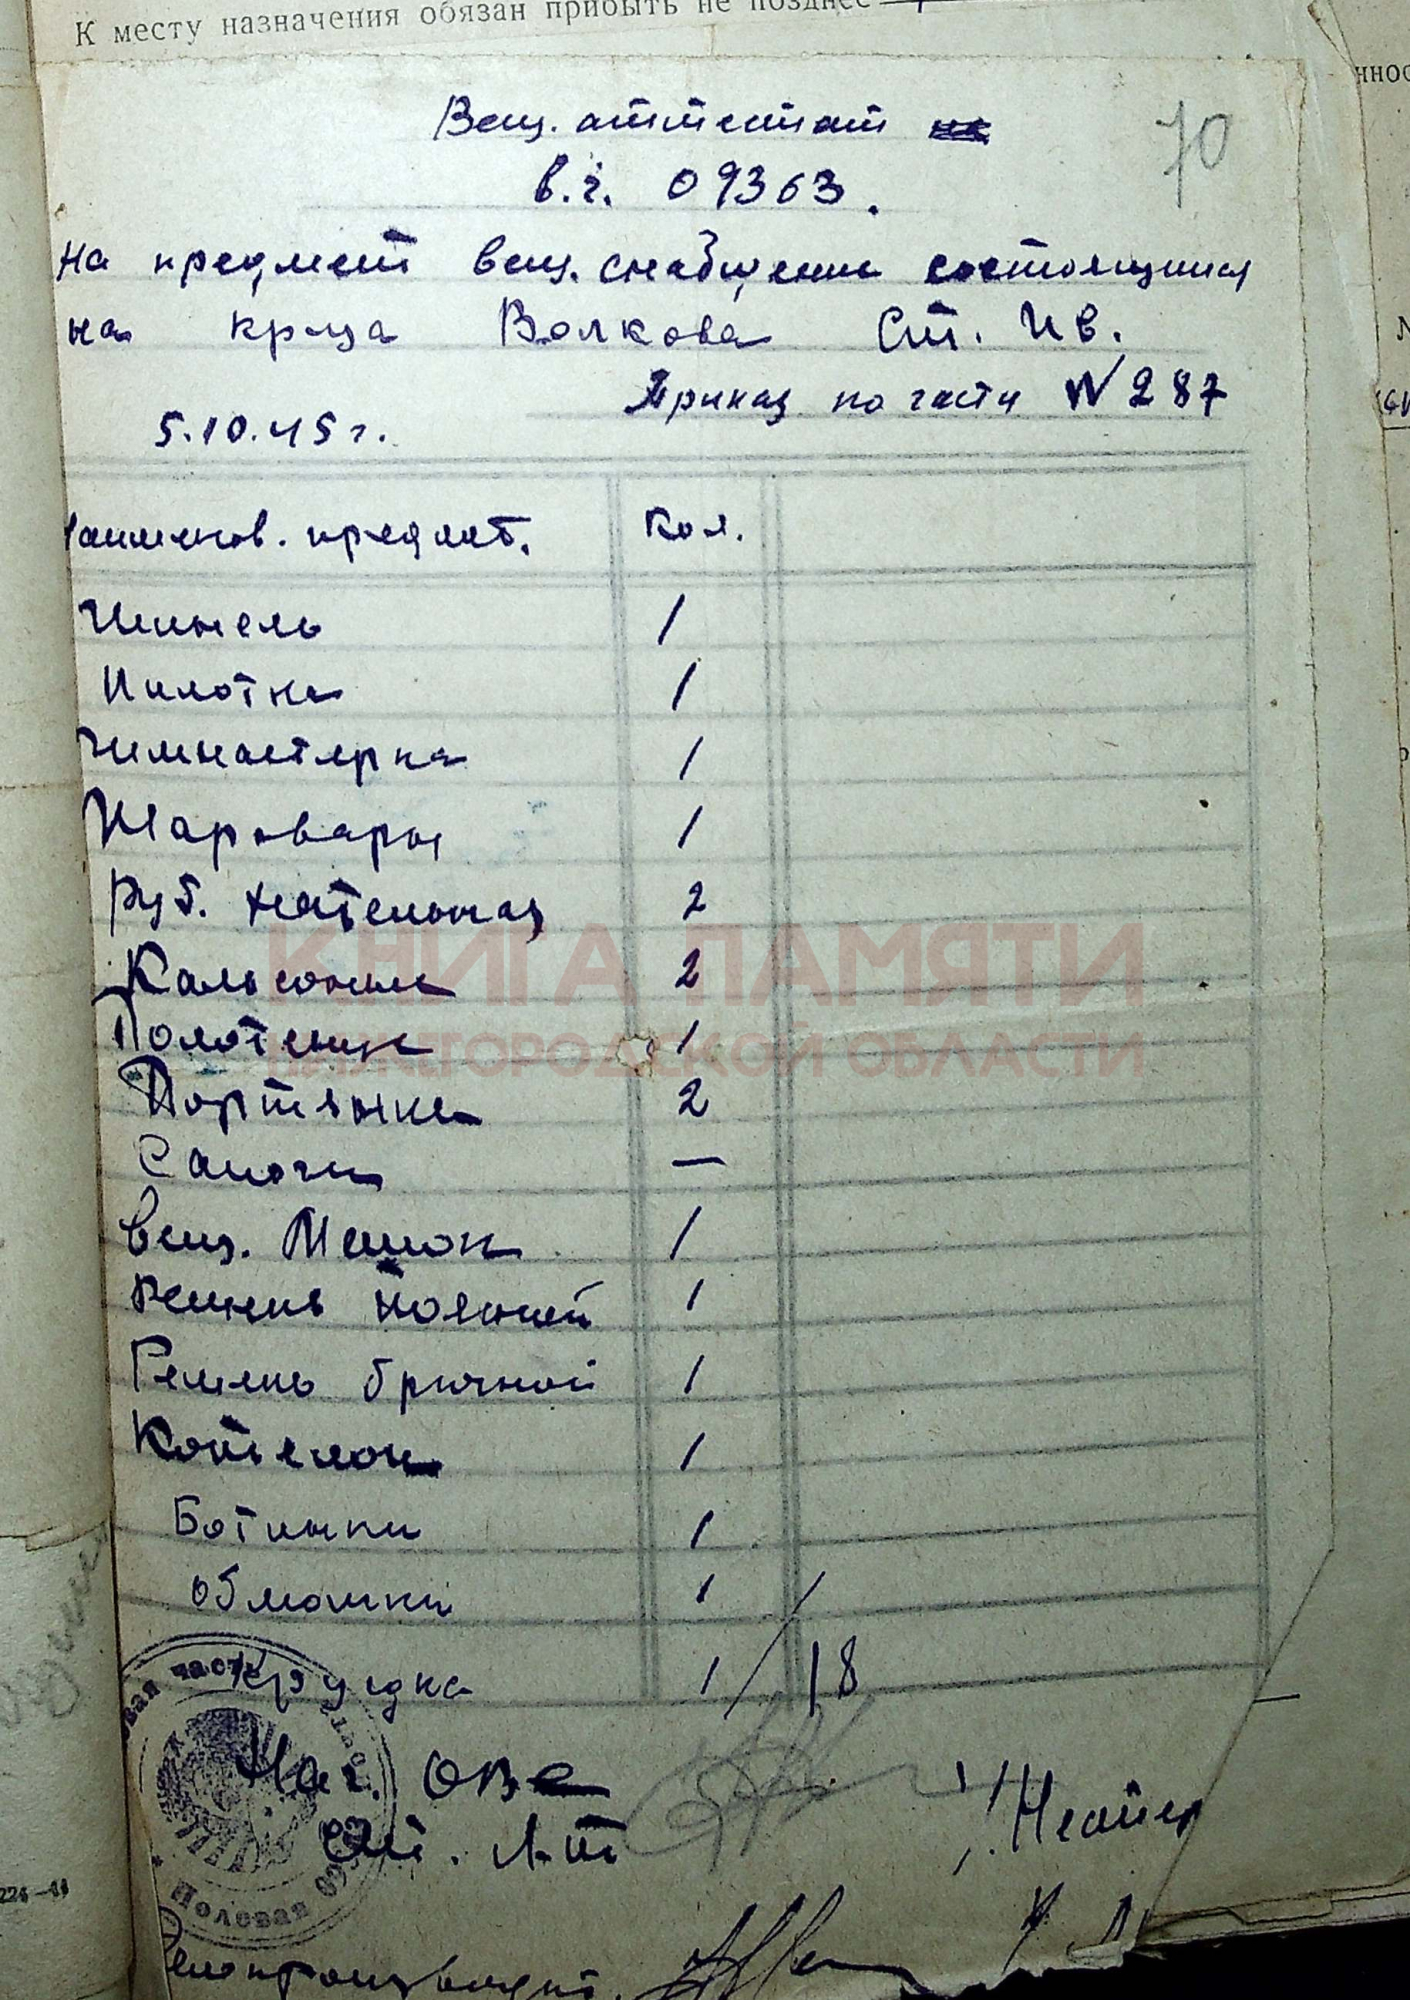 К месту назначения обязан прибыть не позднее
70
Вещ. аттестат
в.ч. 09363.
на предмет вещ. снабжения состоящим
на кр-ца Волкова Ст. Ив.
Приказ по части № 287
5.10.45 г.
Наименов. предмет. Кол.
Шинель 1
Пилотка 1
Гимнастерка 1
Шаровары 1
Руб. нательная 2
Кальсоны 2
КНИГА ПАМЯТИ
Полотенце 1
НИЖЕГОРОДСКОЙ ОБЛАСТИ
Портянки 2
Сапоги —
Вещ. Мешок 1
Ремень поясной 1
Ремень брючной 1
Котелок 1
Ботинки 1
Обмотки 1
Кружка 1 / 18
Нач. ОВС
Ст. л-т
Полевая
Делопроизводит.